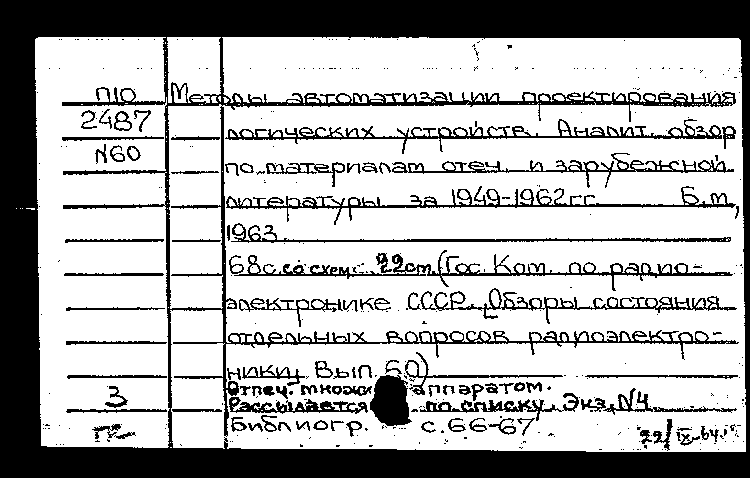 П10 Методы автоматизации проектирования
2487 логических устройств. Аналит. обзор
N60 по материалам отеч. и зарубежной
литературы за 1949-1962гг. Б.м.,
1963.
68с. со схем.; 22см. (Гос. Ком. по радио-
электронике СССР. Обзоры состояния
отдельных вопросов радиоэлектро-
ники, Вып. 60)
Отпеч. множи аппаратом.
3 Рассылается по списку, Экз. N4
Библиогр. с. 66-67
22/IX-64г.